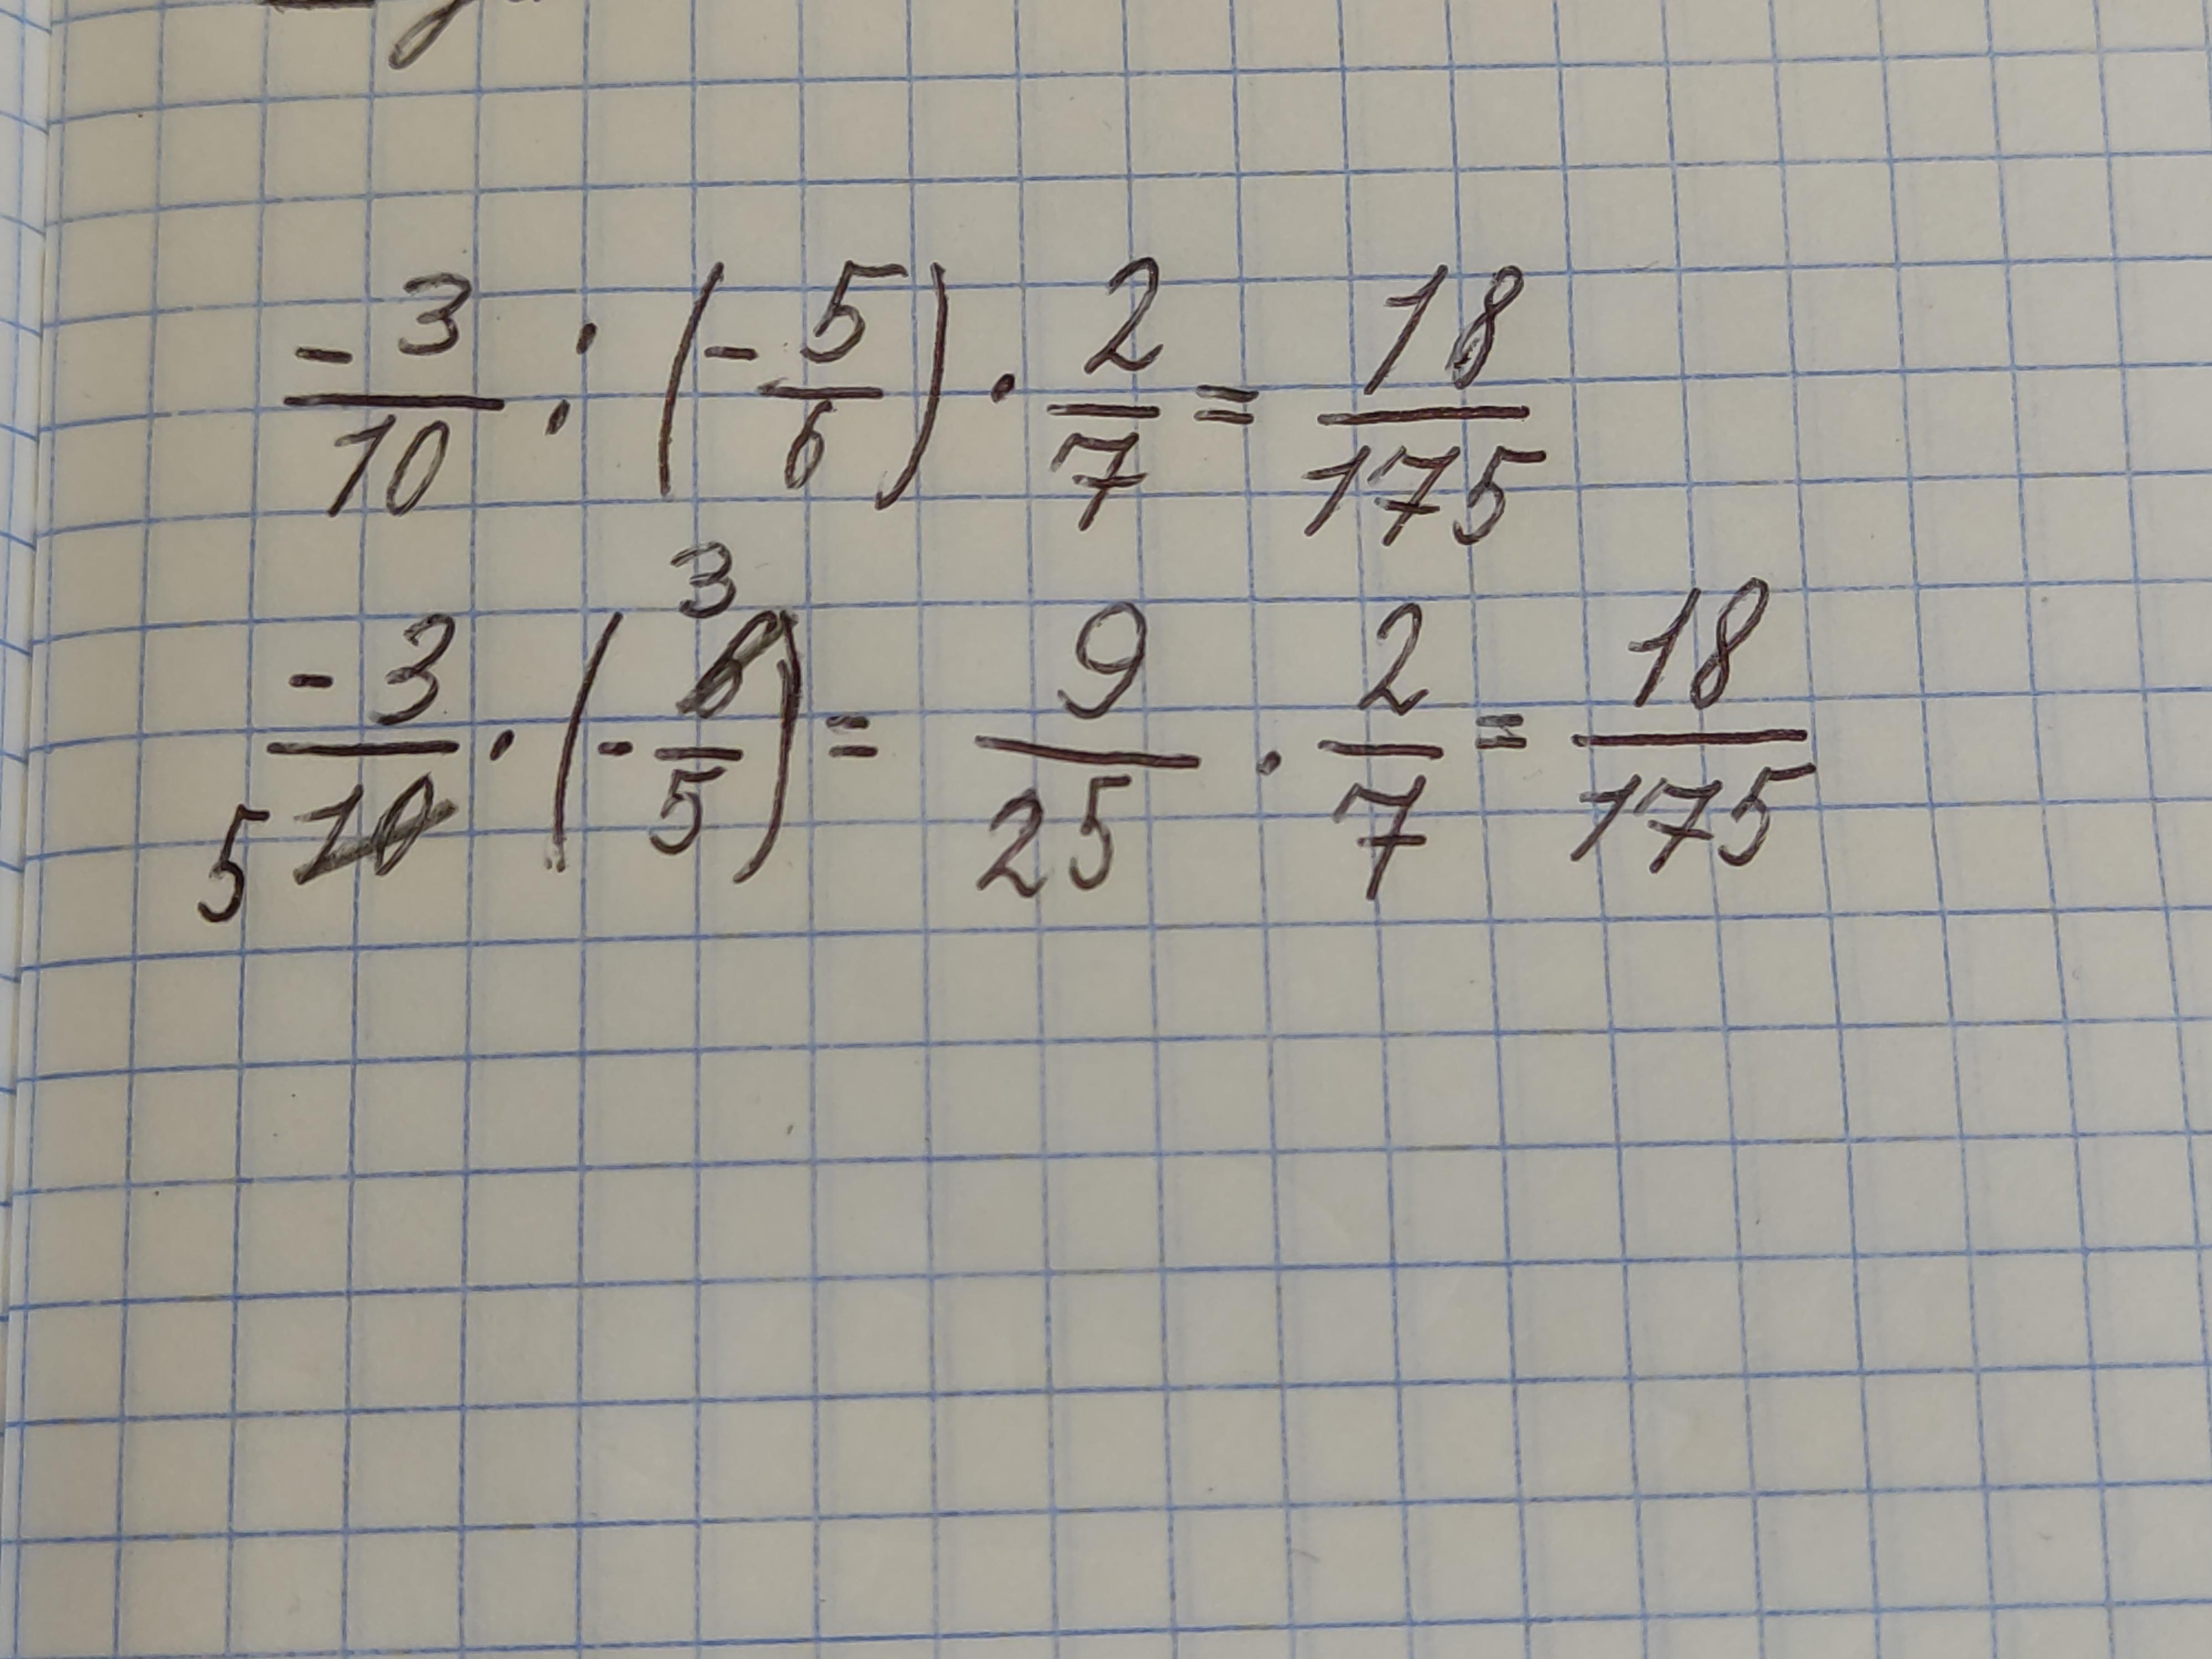 -3/10 : (-5/6) · 2/7 = 18/175
-3/10 5 · (-6/5 3) = 9/25 · 2/7 = 18/175